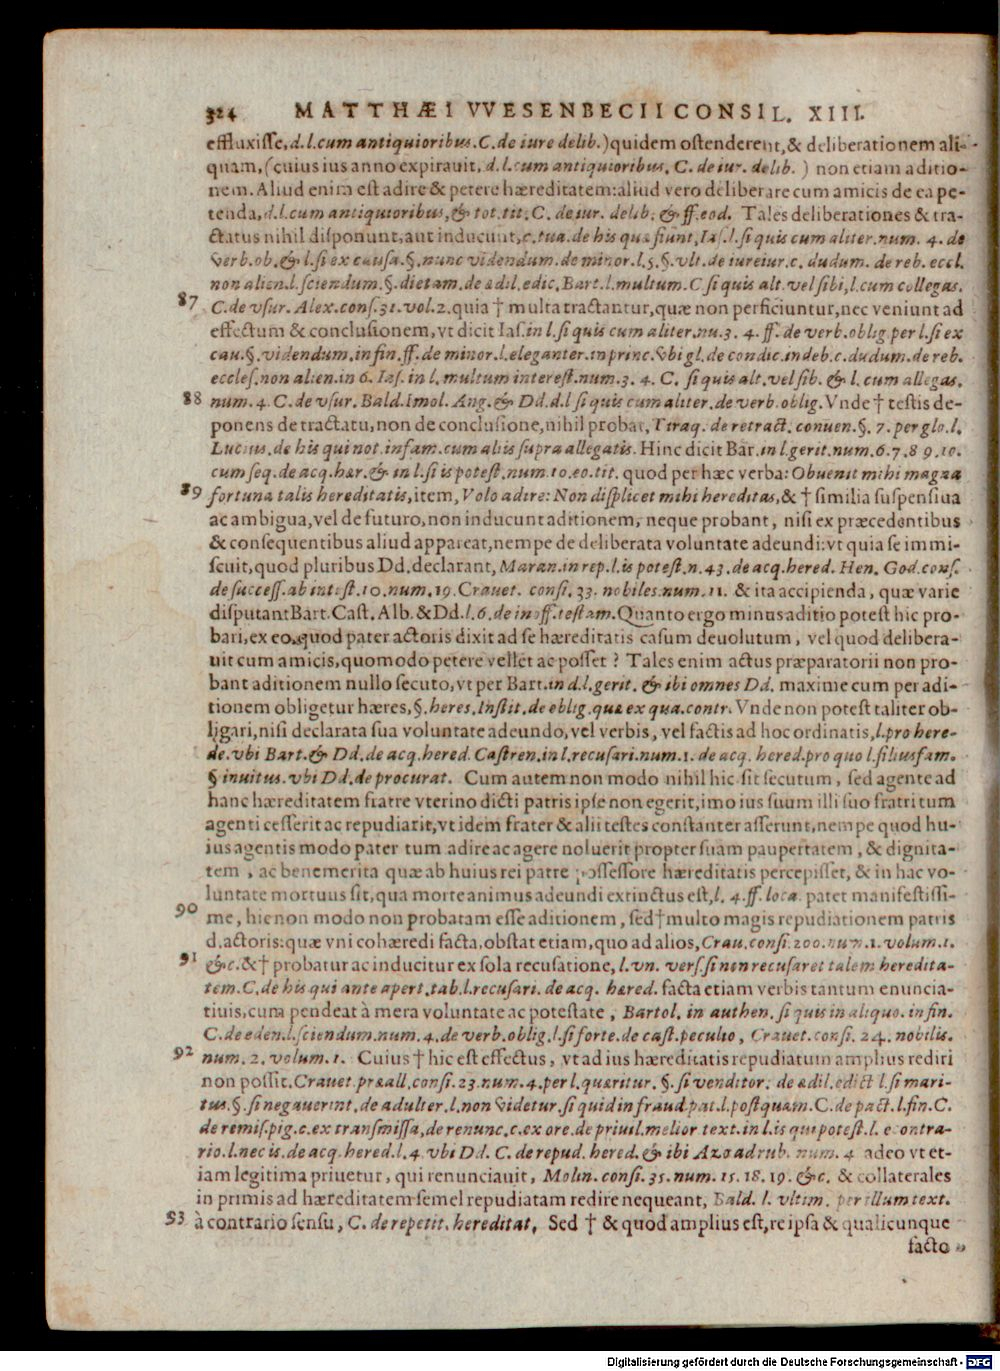 324 MATTHÆI VVESENBECII CONSIL. XIII.
effluxisse, d. l. cum antiquioribus. C. de iure delib.) quidem ostenderent, & deliberationem ali-
quam, (cuius ius anno expirauit, d. l. cum antiquioribus. C. de iur. delib. ) non etiam aditio-
nem. Aliud enim est adire & petere hæreditatem: aliud vero deliberare cum amicis de ea pe-
tenda, d. l. cum antiquioribus, & tot. tit. C. de iur. delib. & ff. eod. Tales deliberationes & tra-
ctatus nihil disponunt, aut inducunt, c. tua. de his quæ fiunt, Ias. l. si quis cum aliter. num. 4. de
verb. ob. & l. si ex causa. §. nunc videndum. de minor. l. 5. §. vlt. de iureiur. c. dudum. de reb. eccl.
non alien. l. sciendum. §. dictam. de ædil. edic. Bart. l. multum. C. si quis alt. vel sibi, l. cum collegas.
87 C. de vsur. Alex. cons. 31. vol. 2. quia † multa tractantur, quæ non perficiuntur, nec veniunt ad
effectum & conclusionem, vt dicit Ias. in l. si quis cum aliter. nu. 3. 4. ff. de verb. oblig. per l. si ex
cau. §. videndum. in fin. ff. de minor. l. eleganter. in princ. vbi gl. de condic. indeb. c. dudum. de reb.
eccles. non alien. in 6. Ias. in l. multum interest. num. 3. 4. C. si quis alt. vel sib. & l. cum allegas.
88 num. 4. C. de vsur. Bald. Imol. Ang. & Dd. d. l. si quis cum aliter. de verb. oblig. Vnde † testis de-
ponens de tractatu, non de conclusione, nihil probat, Tiraq. de retract. conuen. §. 7. per glo. l.
Lucius. de his qui not. infam. cum aliis supra allegatis. Hinc dicit Bar. in l. gerit. num. 6. 7. 8 9. 10.
cum seq. de acq. hær. & in l. si is potest. num. 10. eo. tit. quod per hæc verba: Obuenit mihi magna
89 fortuna talis hereditatis, item, Volo adire: Non displicet mihi hereditas, & † similia suspensiua
ac ambigua, vel de futuro, non inducunt aditionem, neque probant, nisi ex præcedentibus
& consequentibus aliud appareat, nempe de deliberata voluntate adeundi: vt quia se immi-
scuit, quod pluribus Dd. declarant, Maran. in rep. l. is potest. n. 43. de acq. hered. Hen. God. cons.
de success. ab intest. 10. num. 19. Crauet. consi. 33. nobiles. num. 11. & ita accipienda, quæ varie
disputant Bart. Cast. Alb. & Dd. l. 6. de inoff. testam. Quanto ergo minus aditio potest hic pro-
bari, ex eo, quod pater actoris dixit ad se hæreditatis casum deuolutum, vel quod delibera-
uit cum amicis, quomodo petere vellet ac posset? Tales enim actus præparatorii non pro-
bant aditionem nullo secuto, vt per Bart. in d. l. gerit. & ibi omnes Dd. maxime cum per adi-
tionem obligetur hæres, §. heres. Instit. de oblig. quæ ex qua. contr. Vnde non potest taliter ob-
ligari, nisi declarata sua voluntate adeundo, vel verbis, vel factis ad hoc ordinatis, l. pro here-
de. vbi Bart. & Dd. de acq. hered. Castren. in l. recusari. num. 1. de acq. hered. pro quo l. filiusfam.
§ inuitus. vbi Dd. de procurat. Cum autem non modo nihil hic sit secutum, sed agente ad
hanc hæreditatem fratre vterino dicti patris ipse non egerit, imo ius suum illi suo fratri tum
agenti cesserit ac repudiarit, vt idem frater & alii testes constanter asserunt, nempe quod hu-
ius agentis modo pater tum adire ac agere noluerit propter suam paupertatem, & dignita-
tem, ac benemerita quæ ab huius rei patre possessore hæreditatis percepisset, & in hac vo-
luntate mortuus sit, qua morte animus adeundi extinctus est, l. 4. ff. loca. patet manifestissi-
90 me, hic non modo non probatam esse aditionem, sed † multo magis repudiationem patris
d. actoris: quæ vni cohæredi facta, obstat etiam, quo ad alios, Crau. consi. 200. num. 1. volum. 1.
91 &c. & † probatur ac inducitur ex sola recusatione, l. vn. vers. si non recusaret talem heredita-
tem. C. de his qui ante apert. tab. l. recusari. de acq. hæred. facta etiam verbis tantum enuncia-
tiuis, cum pendeat à mera voluntate ac potestate, Bartol. in authen. si quis in aliquo. in fin.
C. de eden. l. sciendum. num. 4. de verb. oblig. l. si forte. de cast. peculio, Crauet. consi. 24. nobilis.
92 num. 2. volum. 1. Cuius † hic est effectus, vt ad ius hæreditatis repudiatum amplius rediri
non possit. Crauet. præall. consi. 23. num. 4. per l. quæritur. §. si venditor. de ædil. edict. l. si mari-
tus. §. si negauerint. de adulter. l. non videtur. si quid in fraud. pat. l. postquam. C. de pact. l. fin. C.
de remis. pig. c. ex transmissa, de renunc. c. ex ore. de priuil. melior text. in l. is qui potest. l. e contra-
rio. l. nec is. de acq. hered. l. 4. vbi Dd. C. de repud. hered. & ibi Azo ad rub. num. 4 adeo vt et-
iam legitima priuetur, qui renunciauit, Molin. consi. 35. num. 15. 18. 19. &c. & collaterales
in primis ad hæreditatem semel repudiatam redire nequeant, Bald. l. vltim. per illum text.
93 à contrario sensu, C. de repetit. hereditat. Sed † & quod amplius est, re ipsa & qualicunque
facto
Digitalisierung gefördert durch die Deutsche Forschungsgemeinschaft - DFG